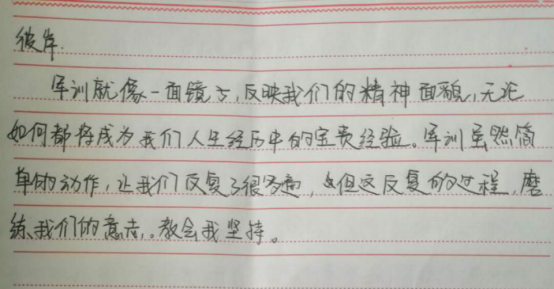 彼岸.
军训就像一面镜子,反映我们的精神面貌,无论
如何都将成为我们人生经历中的宝贵经验。军训虽然简
单的动作,让我们反复了很多遍,但这反复的过程,磨
练我们的意志,教会我坚持。